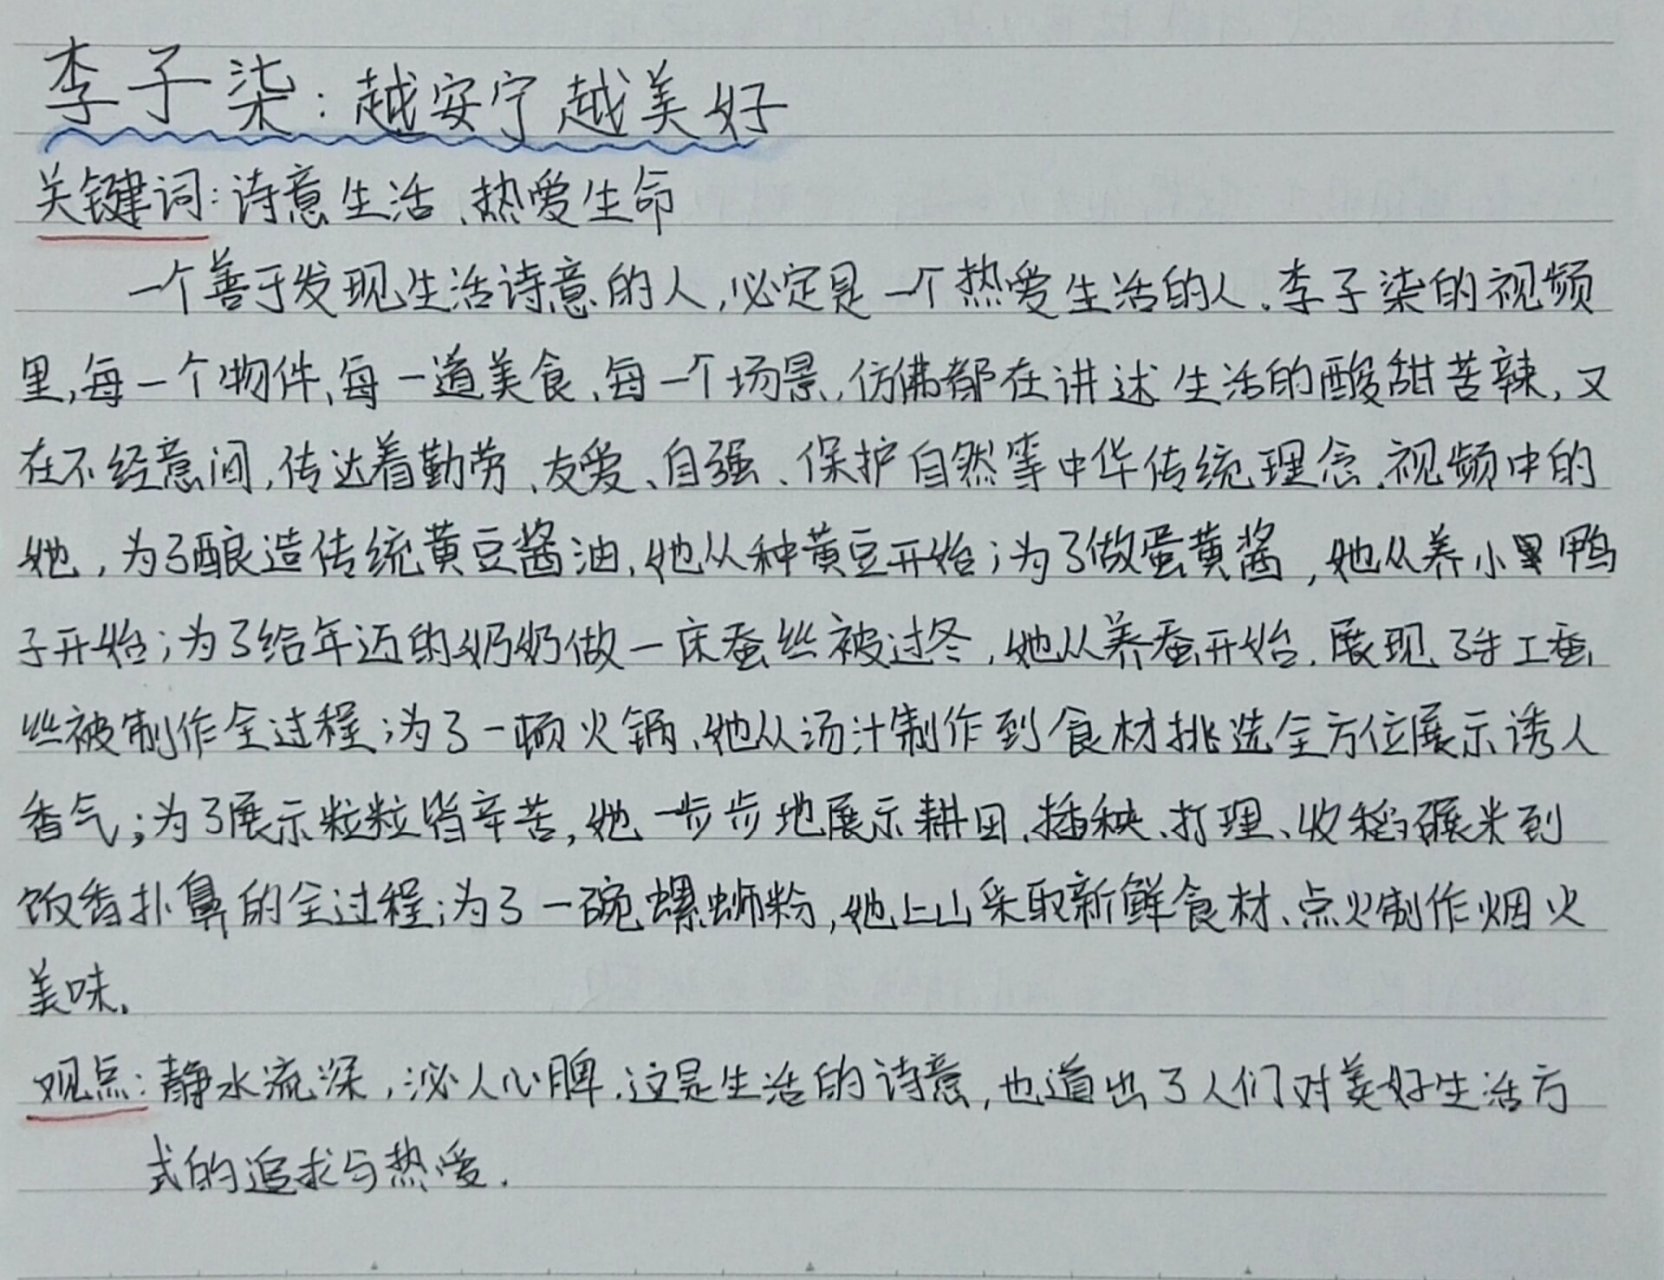 李子柒:越安宁越美好
关键词:诗意生活、热爱生命
一个善于发现生活诗意的人,必定是一个热爱生活的人.李子柒的视频
里,每一个物件,每一道美食、每一个场景,仿佛都在讲述生活的酸甜苦辣,又
在不经意间,传达着勤劳、友爱、自强、保护自然等中华传统理念.视频中的
她,为了酿造传统黄豆酱油,她从种黄豆开始;为了做蛋黄酱,她从养小黑鸭
子开始;为了给年迈的奶奶做一床蚕丝被过冬,她从养蚕开始.展现了手工蚕
丝被制作全过程;为了一顿火锅、她从汤汁制作到食材挑选全方位展示诱人
香气;为了展示粒粒皆辛苦,她一步步地展示耕田、插秧、打理、收稻碾米到
饭香扑鼻的全过程;为了一碗螺蛳粉,她上山采取新鲜食材、点火制作烟火
美味.
观点:静水流深,沁人心脾.这是生活的诗意,也道出了人们对美好生活方
式的追求与热爱.